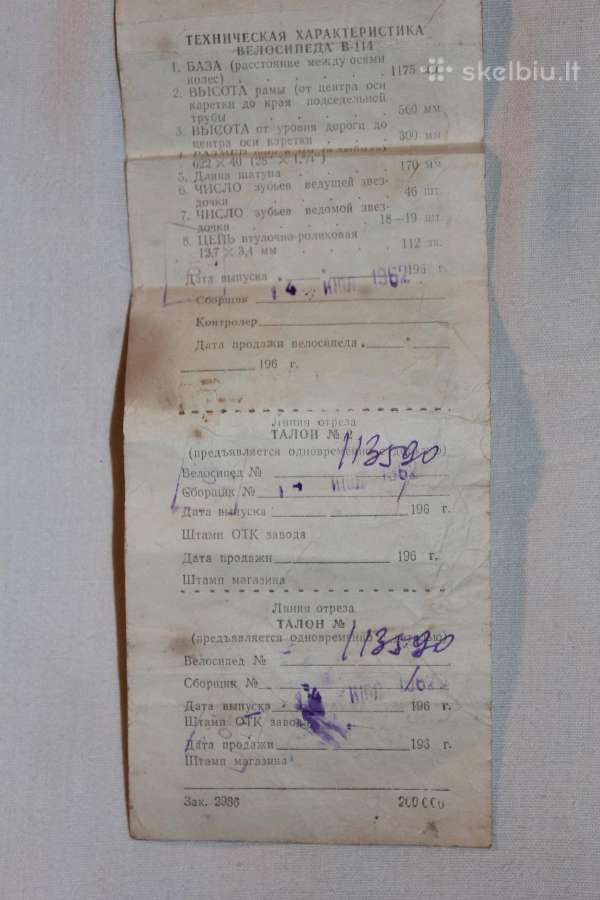 skelbiu.lt
ТЕХНИЧЕСКАЯ ХАРАКТЕРИСТИКА
ВЕЛОСИПЕДА В-114
1. БАЗА (расстояние между осями
колес) . . . . . 1175
2. ВЫСОТА рамы (от центра оси
каретки до края подседельной
трубы . . . . . 560 мм
3. ВЫСОТА от уровня дороги до
центра оси каретки . . 300 мм
4. РАЗМЕР шин
622×40
5. Длина шатуна . . . . 170 мм
6. ЧИСЛО зубьев ведущей звез-
дочки . . . . . 46 шт.
7. ЧИСЛО зубьев ведомой звез-
дочки . . . . . 18—19 шт.
8. ЦЕПЬ втулочно-роликовая
12,7×3,4 мм . . . . 112 зв.
Дата выпуска 196 г.
ИЮЛ 1962
Сборщик
Контролер
Дата продажи велосипеда
196 г.
Линия отреза
ТАЛОН № 2
(предъявляется одновременно
Велосипед № 113590
Сборщик № ИЮЛ 1962
Дата выпуска 196 г.
Штамп ОТК завода
Дата продажи 196 г.
Штамп магазина
Линия отреза
ТАЛОН №
(предъявляется одновременно
Велосипед № 113590
Сборщик №
ИЮЛ 1962
Дата выпуска 196 г.
Штамп ОТК завода
Дата продажи 193 г.
Штамп магазина
Зак. 2986 200 000